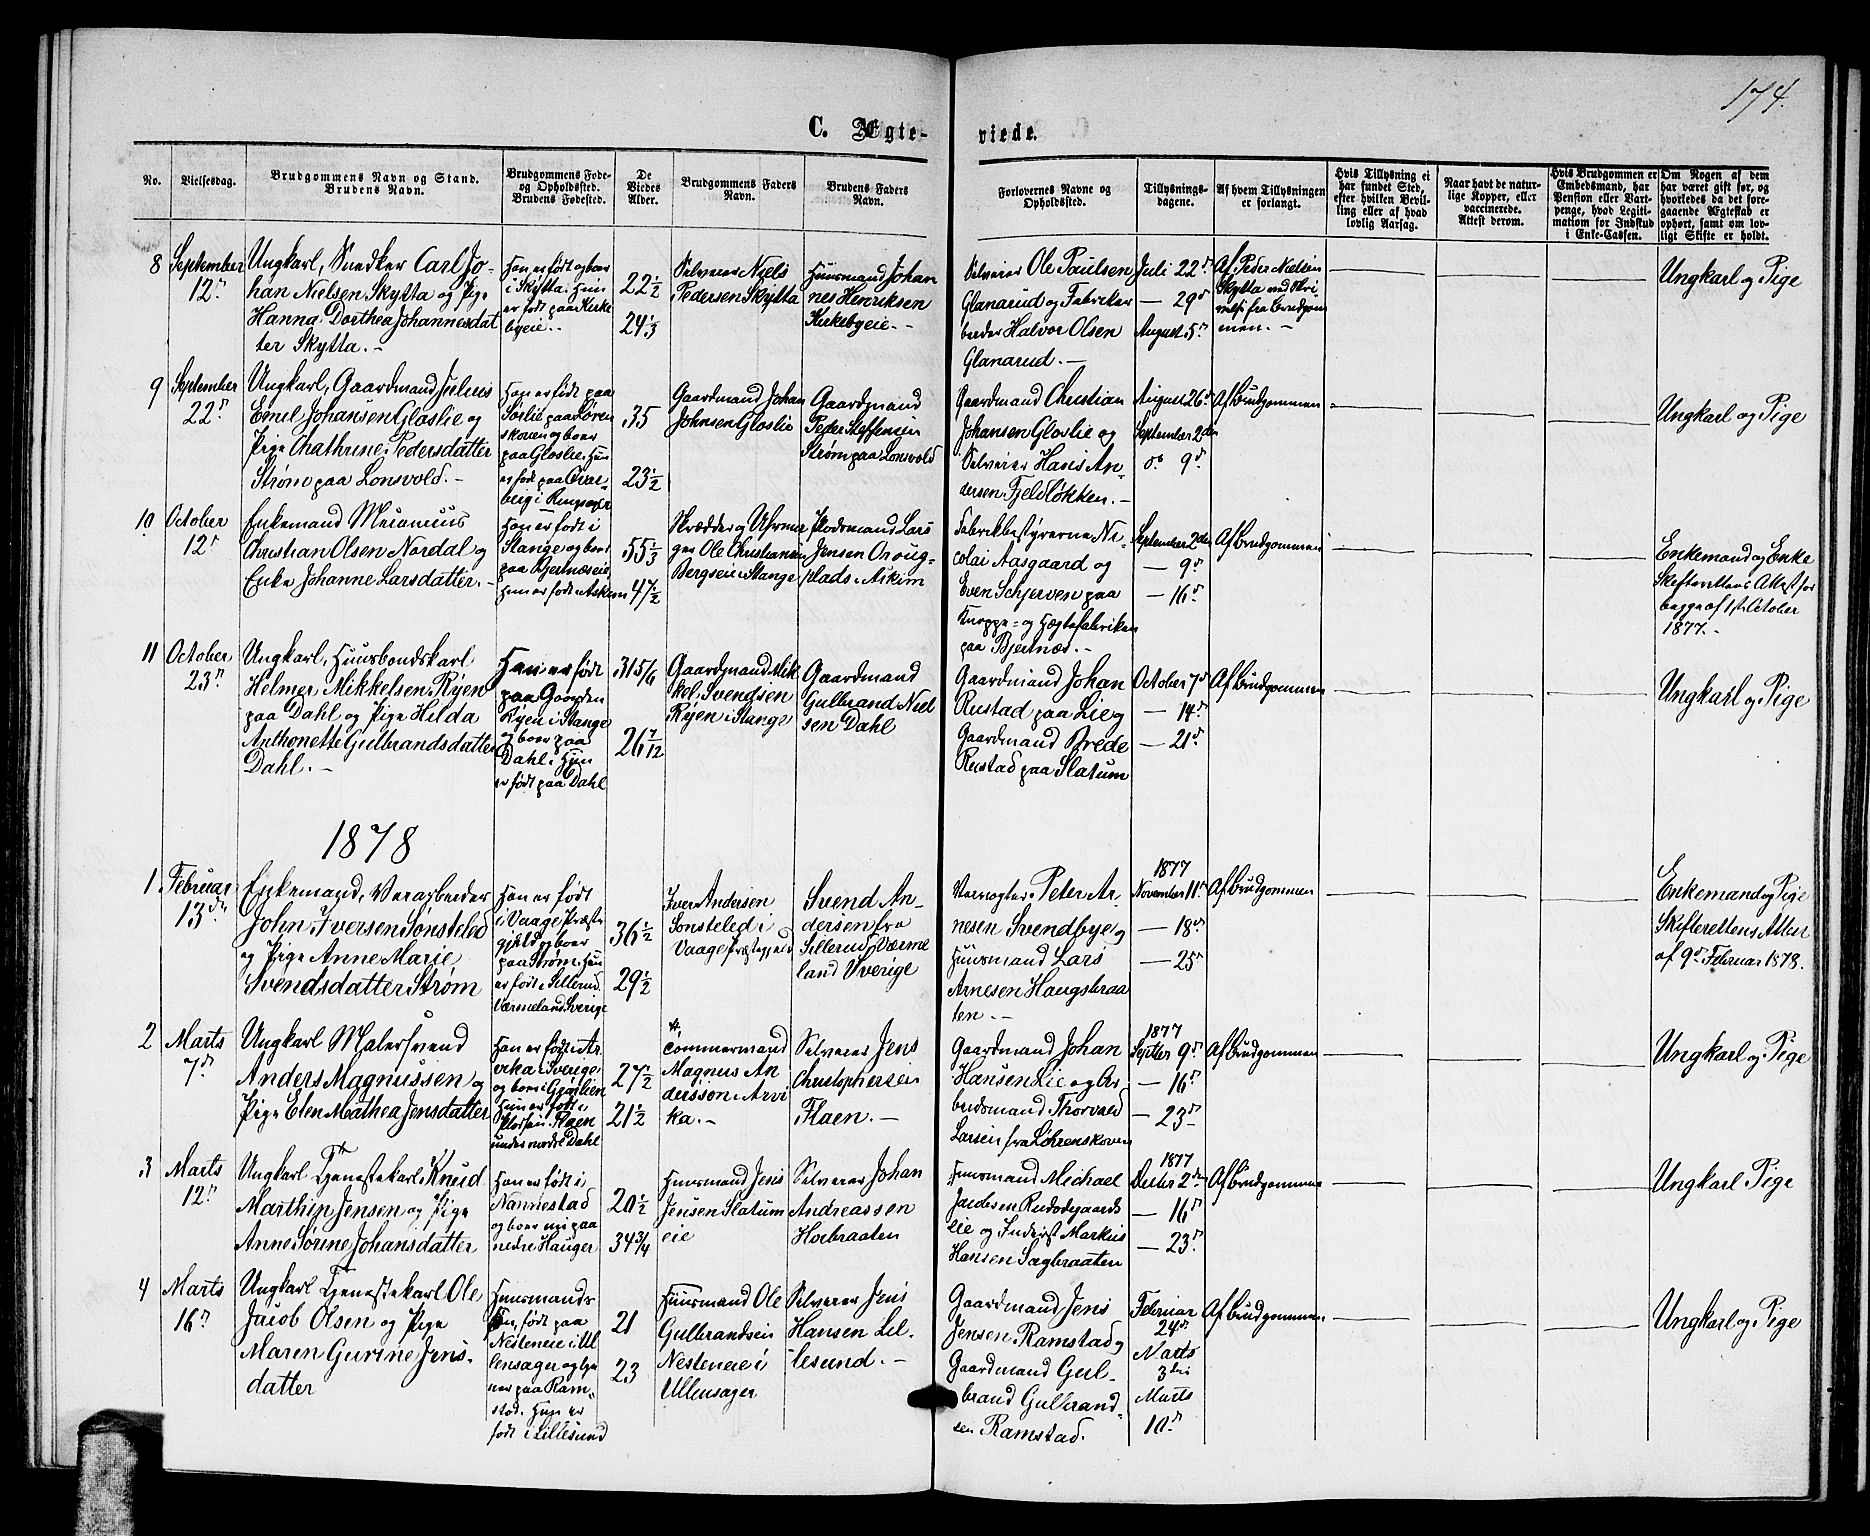 174.
C. Ægte-
viede.
No.
Vielsesdag.
Brudgommens Navn og Stand.
Brudens Navn.
Brudgommens Føde-
og Opholdssted.
Brudens Fødested.
De
Viedes
Alder.
Brudgommens Faders
Navn.
Brudens Faders
Navn.
Forlovernes Navne og
Opholdssted.
Tillysnings-
dagene.
Af hvem Tillysningen
er forlangt.
Hvis Tillysning ei
har fundet Sted,
efter hvilken Bevil-
ling eller af hvad
lovlig Aarsag.
Naar havt de natur-
lige Kopper, eller
vaccinerede.
Attest derom.
Hvis Brudgommen er
Embedsmand, har
Pension eller Vart-
penge, hvad Legiti-
mation for Indskud
i Enke-Cassen.
Om Nogen af dem
har været gift før, og
hvorledes da det fore-
gaaende Ægteskab er
ophørt, samt om lov-
ligt Skifte er holdt.
8
September
12te
Ungkarl, Snedker Carl Jo-
han Nielsen Skytta og Pige
Hanna Dorthea Johannesdat
ter Skytta. –
Han er født og boer
i Skytta. Hun
er født paa Kirke
byeie. –
22 1/2
24 1/3
Selveier Niels
Pedersen Skytta
Huusmand Johan
nes Henriksen
Kirkebyeie. –
Selveier Ole Paulsen
Glanarud og Fabrikar
beider Halvor Olsen
Glanarud. –
Juli 22de
– 29de
August 5te
Af Peder Nielsen
Skytta ved Skri
velse fra Brudgom
men. –
Ungkarl og Pige
9
September
22de
Ungkarl, Gaardmand Julius
Emil Johansen Gloslie og
Pige Chathrine Pedersdatter
Strøm paa Lonsvold. –
Han er født paa
Soslie paa Løren
skoven og boer
paa Gloslie. Hun
er født paa Over-
berg i Ringsager
35
23 1/2
Gaardmand Johan
Johnsen Gloslie
Gaardmand
Peder Steffensen
Strøm paa Lonsvold
Gaardmand Christian
Johansen Gloslie og
Selveier Hans An-
dersen Fjeldløkken. –
August 26de
September 2den
do 9de
Af Brudgommen
Ungkarl og Pige
10
October
12te
Enkemand
Christian Olsen Nordal og
Enke Johanne Larsdatter. –
Han er født i
Stange og boer
paa Bjertnæseie
Hun er født i Askim
55 1/3
47 1/2
Skrædder og
Ole Christiansen
Bergseie i Stange
Plodsmand Lars
Jensen Oroug-
plads i Askim
Fabrikbestyrerne Ni-
colai Aasgaard og
Even Schjerven paa
Knappe- og Hægtefabriken
paa Bjertnæs. –
September 2den
– 9de
– 16de
Af Brudgommen
Enkemand og Enke
Skifterettens Attest for
begge af 1ste October
1877. –
11
October
23de
Ungkarl, Huusbondskarl
Helmer Mikkelsen Ryen
paa Dahl og Pige Hilda
Anthonette Gulbrandsdatter
Dahl. –
Han er født
paa Gaarden
Ryen i Stange
og boer paa
Dahl. Hun
er født paa Dahl
31 5/6
26 7/12
Gaardmand Mik
kel Svendsen
Ryen i Stange
Gaardmand
Gulbrand Niel
sen Dahl
Gaardmand Johan
Rustad paa Lie og
Gaardmand Brede
Rustad paa Slatum
October 7de
– 14de
– 21de
Af Brudgommen
Ungkarl og Pige
1878
1
Februar
13de
Enkemand, Veiarbeider
John Iversen Sønsteled
og Pige Anne Marie
Svendsdatter Strøm
Han er født
i Vaage Præste
gjeld og boer
paa Strøm. Hun
er født i Sillerud.
Værmeland. Sverige
36 1/2
29 1/2
Iver Andersen
Sonsteled i
Vaage Præstegjeld
Svend An-
dersen fra
Sillerud. Værme
land Sverige
Peter Ar-
nesen Svendbye og
Huusmand Lars
Arnesen Haugsbraa
ten. –
1877
November 11te
– 18de
– 25de
Af Brudgommen
Enkemand og Pige
Skifterettens Attest
af 9de Februar 1878.
2
Marts
7de
Ungkarl Malersvend
Anders Magnussen og
Pige Elen Mathea Jensdatter
Han er født i Ar
vika i Sverige
og boer i Gjøslien
Hun er født i
Pladsen Flaen
under nordre Dahl
27 1/2
21 1/2
Tømmermand
Magnus An
dersson i Arvi
ka. –
Selveier Jens
Christophersen
Flaen. –
Gaardmand Johan
Hansen Lie og Ar
beidsmand Thorvald
Larsen fra Løhrenskoven
1877
Septber 9de
– 16de
– 23de
Af Brudgommen
Ungkarl og Pige
3
Marts
12te
Ungkarl Tjenestekarl Knud
Marthin Jensen og Pige
Anne Sørine Johansdatter
Han er født i
Nannestad
og boer nu paa
nedre Hauger
20 1/2
34 3/4
Huusmand Jens
Jensen Slatum
eie
Selveier Johan
Andreassen
Hoebraaten
Huusmand Michael
Jacobsen Rudsdgaards
eie og Inderst Markus
Hansen Sagbraaten
1877
Decber 2den
– 16de
– 23de
Af Brudgommen
Ungkarl Pige
4
Marts
16de
Ungkarl Tjenestekarl Ole
Jacob Olsen og Pige
Maren Gurine Jens-
datter
Huusmands
søn, født paa
Nesteneie i Ul
lensager og tje
ner paa Ram-
stad. Hun er
født i Lillesund
21
23
Huusmand Ole
Gulbrandsen
Nesteneie i
Ullensager
Selveier Jens
Hansen Lil-
lesund. –
Gaardmand Jens
Jensen Ramstad og
Gaardmand Gul-
brand Gulbrand-
sen Ramstad.
Februar
24de
Marts
3die
Marts
10de
Af Brudgommen
Ungkarl og Pige